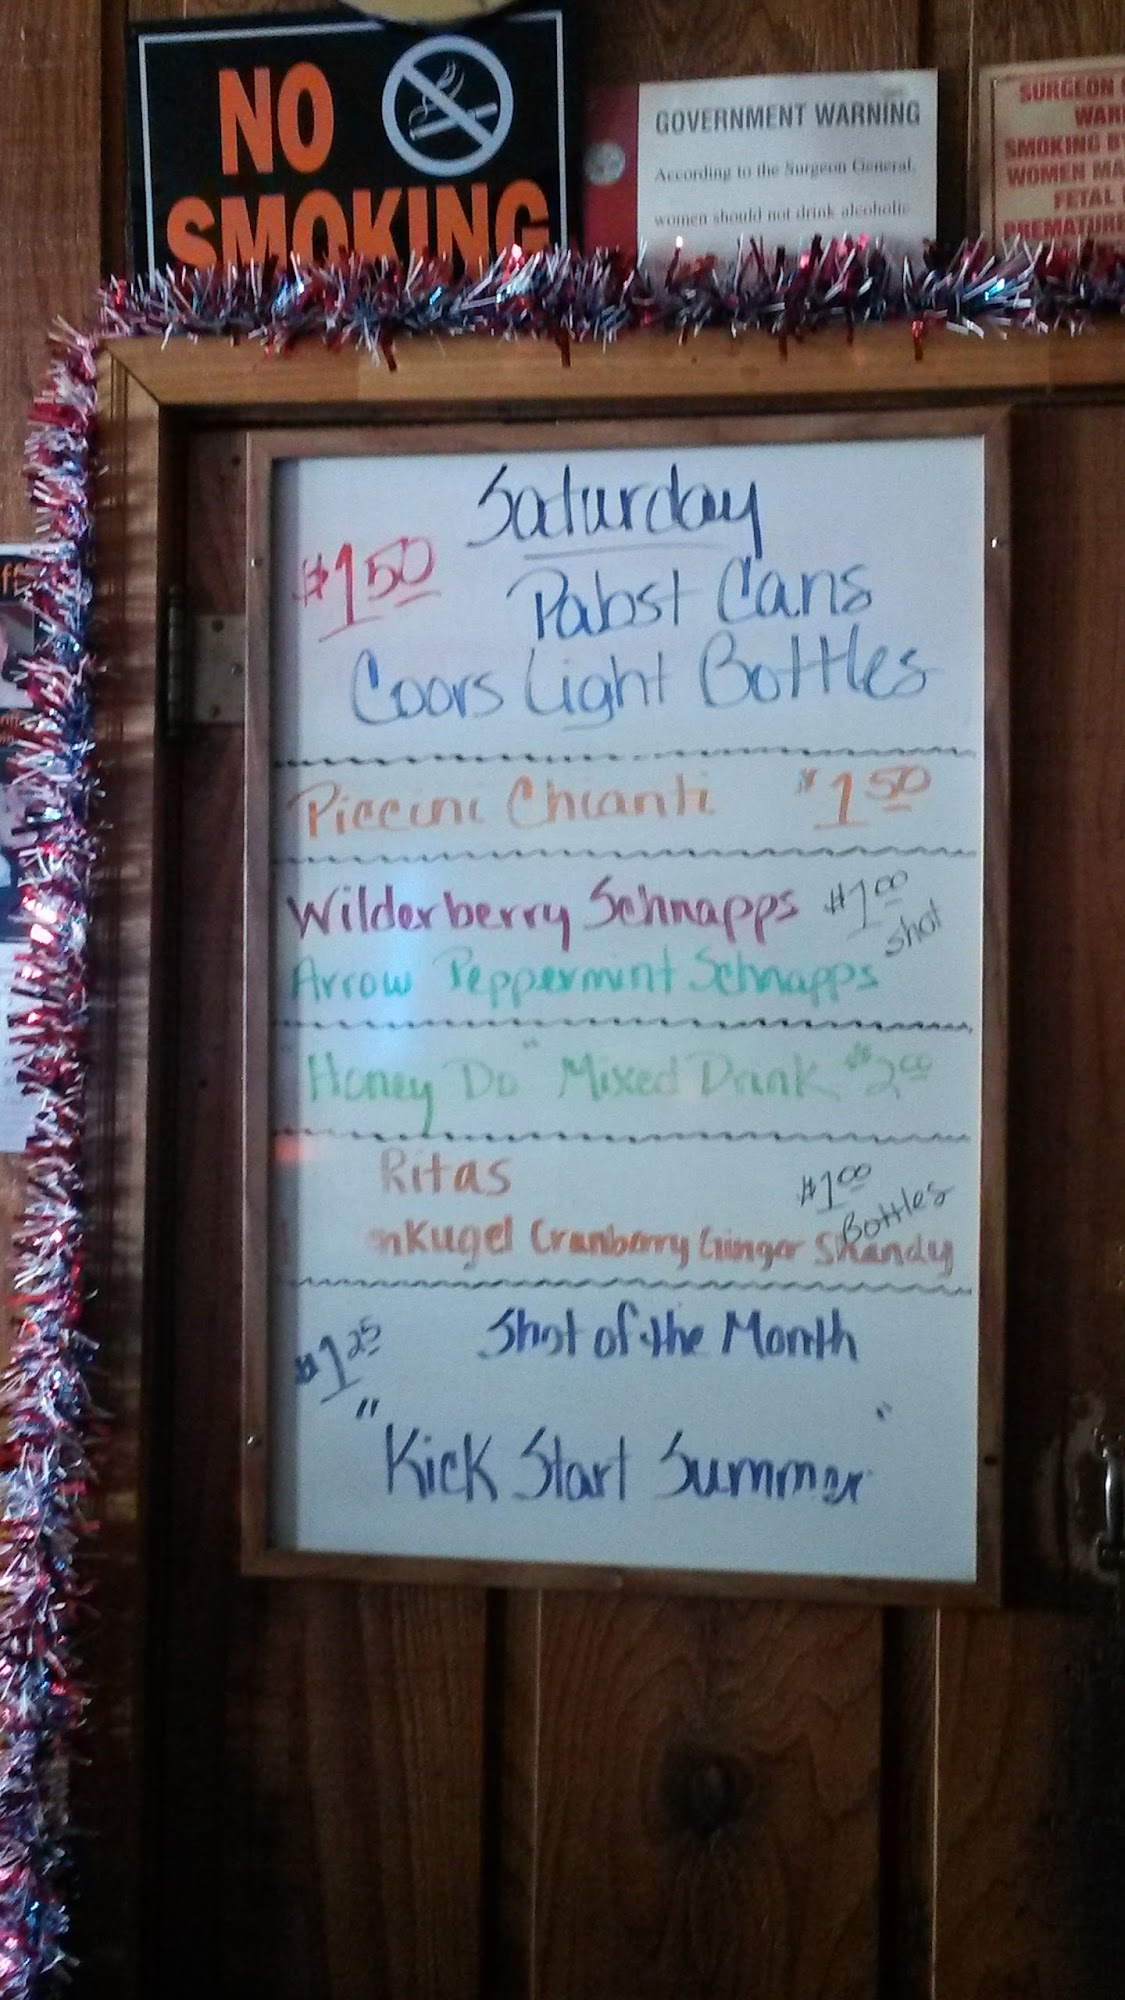 NO
SMOKING
GOVERNMENT WARNING
According to the Surgeon General,
women should not drink alcoholic
SURGEON
SMOKING
WOMEN MA
FETAL
PREMATURE
Saturday
$1.50
Pabst Cans
Coors Light Bottles
Piccini Chianti $1.50
Wilderberry Schnapps $1.00
shot
Arrow Peppermint Schnapps
"Honey Do" Mixed Drink $2.00
Ritas
$1.00
Bottles
nKugel Cranberry Ginger Shandy
Shot of the Month
$1.25
"Kick Start Summer"